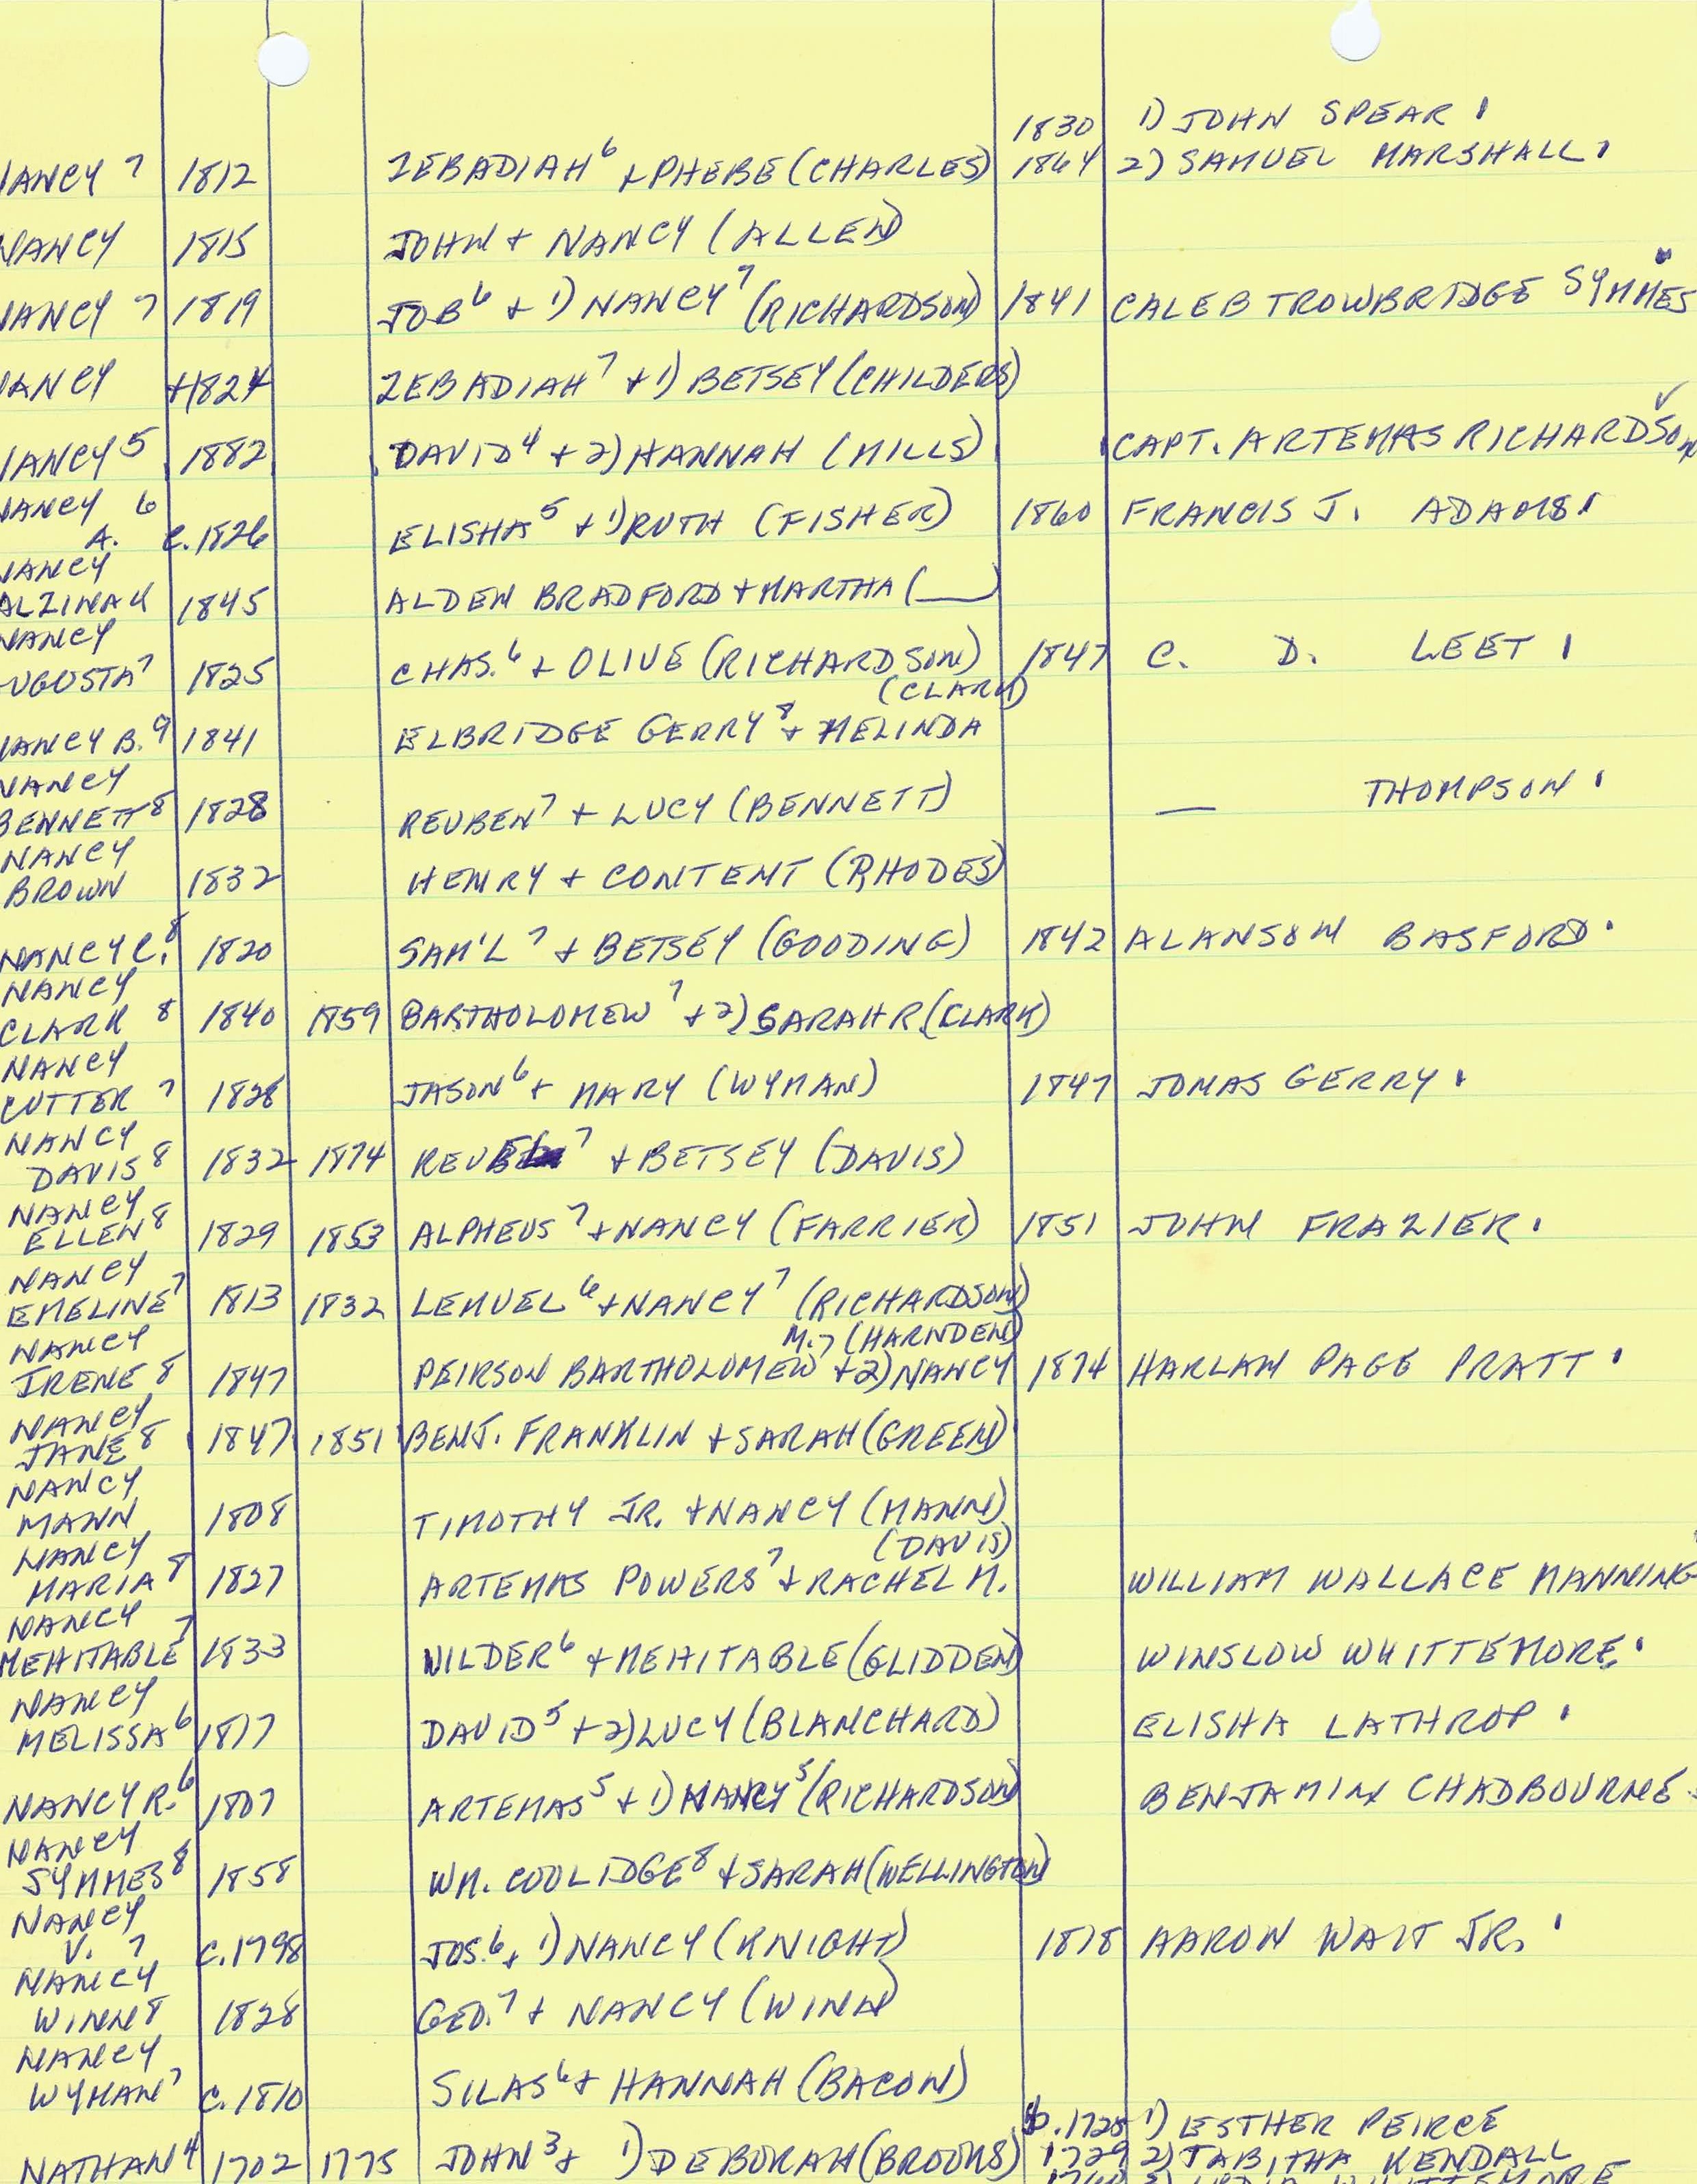 1830 1) JOHN SPEAR
NANCY 7 1812 ZEBADIAH 6 + PHEBE (CHARLES) 1864 2) SAMUEL MARSHALL
NANCY 1815 JOHN + NANCY (ALLEN)
NANCY 7 1819 JOB 6 + 1) NANCY 7 (RICHARDSON) 1841 CALEB TROWBRIDGE SYMMES
NANCY 1824 ZEBADIAH 7 + 1) BETSEY (CHILDERS)
NANCY 5 1882 DAVID 4 + 2) HANNAH (MILLS) CAPT. ARTEMAS RICHARDSON
NANCY 6
A. C. 1826 ELISHA 5 + 1) RUTH (FISHER) 1860 FRANCIS J. ADAMS
NANCY
ALZINAH 1845 ALDEN BRADFORD + MARTHA (__)
NANCY
UGUSTA 7 1825 CHAS. 6 + OLIVE (RICHARDSON) 1847 C. D. LEET
(CLARK)
NANCY B. 9 1841 ELBRIDGE GERRY 8 + MELINDA
NANCY
BENNETT 8 1828 REUBEN 7 + LUCY (BENNETT) — THOMPSON
NANCY
BROWN 1832 HENRY + CONTENT (RHODES)
NANCY C. 8 1820 SAM'L 7 + BETSEY (GOODING) 1842 ALANSON BASFORD
NANCY
CLARK 8 1840 1859 BARTHOLOMEW 7 + 2) SARAH R (CLARK)
NANCY
CUTTER 7 1828 JASON 6 + MARY (WYMAN) 1847 JONAS GERRY
NANCY
DAVIS 8 1832 1874 REUBEN 7 + BETSEY (DAVIS)
NANCY
ELLEN 8 1829 1853 ALPHEUS 7 + NANCY (FARRIER) 1851 JOHN FRAZIER
NANCY
EMELINE 7 1813 1832 LEMUEL 6 + NANCY 7 (RICHARDSON)
NANCY M. 7 (HARNDEN)
IRENE 8 1847 PEIRSON BARTHOLOMEW + 2) NANCY 1874 HARLAN PAGE PRATT
NANCY
JANE 8 1847 1851 BENJ. FRANKLIN + SARAH (GREEN)
NANCY
MANN 1808 TIMOTHY JR. + NANCY (MANN)
NANCY (DAVIS)
MARIA 8 1827 ARTEMAS POWERS 7 + RACHEL M. WILLIAM WALLACE MANNING
NANCY
MEHITABLE 7 1833 WILDER 6 + MEHITABLE (GLIDDEN) WINSLOW WHITTEMORE
NANCY
MELISSA 6 1817 DAVID 5 + 2) LUCY (BLANCHARD) ELISHA LATHROP
NANCY R. 6 1807 ARTEMAS 5 + 1) NANCY 5 (RICHARDSON) BENJAMIN CHADBOURNE
NANCY
SYMMES 8 1858 WM. COOLIDGE 8 + SARAH (WELLINGTON)
NANCY
V. 7 C. 1798 JOS. 6 + 1) NANCY (KNIGHT) 1818 AARON WAIT JR.
NANCY
WINN 8 1828 GEO. 7 + NANCY (WINN)
NANCY
WYMAN 7 C. 1810 SILAS 6 + HANNAH (BACON)
b. 1725 1) ESTHER PEIRCE
NATHAN 4 1702 1775 JOHN 3 + 1) DEBORAH (BROOKS) 1729 2) TABITHA KENDALL